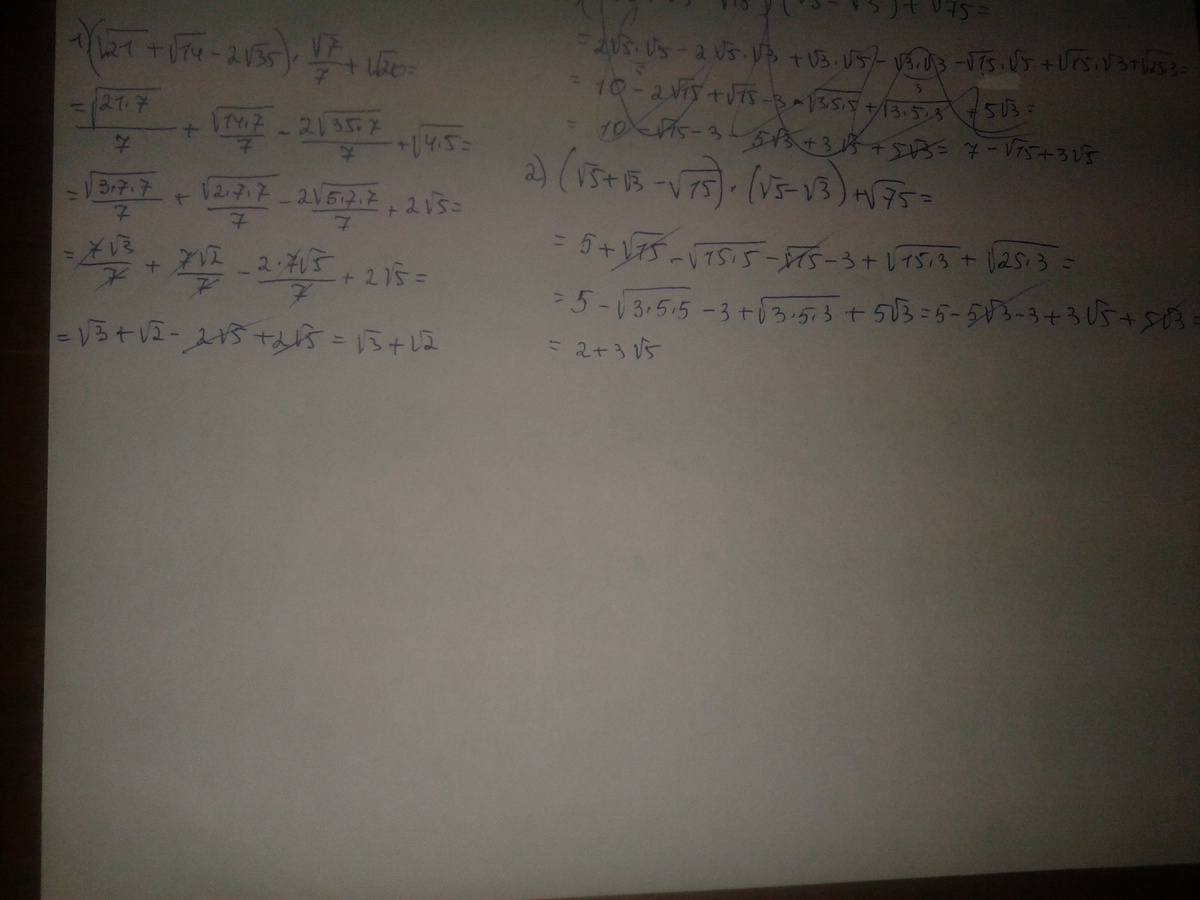 1) (√21 + √14 - 2√35) · √7/7 + √20 =
= √21·7/7 + √14·7/7 - 2√35·7/7 + √4·5 =
= √3·7·7/7 + √2·7·7/7 - 2√5·7·7/7 + 2√5 =
= 7√3/7 + 7√2/7 - 2·7√5/7 + 2√5 =
= √3 + √2 - 2√5 + 2√5 = √3 + √2
+ √75 =
= 2√5·√5 - 2√5·√3 + √3·√5 - √3·√3 - √15·√5 + √15·√3 + √25·3 =
= 10 - 2√15 + √15 - 3 - √3·5·5 + √3·5·3 + 5√3 =
= 10 - √15 - 3 - 5√3 + 3√5 + 5√3 = 7 - √15 + 3√5
2) (√5 + √3 - √15) · (√5 - √3) + √75 =
= 5 + √15 - √15·5 - √15 - 3 + √15·3 + √25·3 =
= 5 - √3·5·5 - 3 + √3·5·3 + 5√3 = 5 - 5√3 - 3 + 3√5 + 5√3 =
= 2 + 3√5